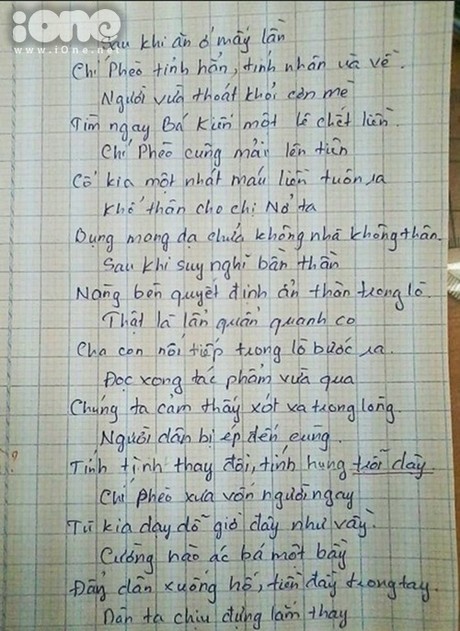 iOne
www.iOne.net
Sau khi ăn ở mấy lần
Chí Phèo tỉnh hẳn, tính nhân và về.
Người vừa thoát khỏi cơn mê
Tìm ngay Bá Kiến một lê chết liền.
Chí Phèo cũng mải lên tiên
Cổ kia một nhát máu liền tuôn ra
Khổ thân cho chị Nở ta
Bụng mang dạ chửa không nhà không thân.
Sau khi suy nghĩ bần thần
Nàng bèn quyết định ẩn thân trong lò.
Thật là lẩn quẩn quanh co
Cha con nối tiếp trong lò bước ra.
Đọc xong tác phẩm vừa qua
Chúng ta cảm thấy xót xa trong lòng.
Người dân bị ép đến cùng.
Tính tình thay đổi, tính hung trỗi dậy.
Chí Phèo xưa vốn người ngay
Tù kia dạy dỗ giờ đây như vầy.
Cường hào ác bá một bầy
Đẩy dân xuống hố, tiền đầy trong tay.
Dân ta chịu đựng lắm thay